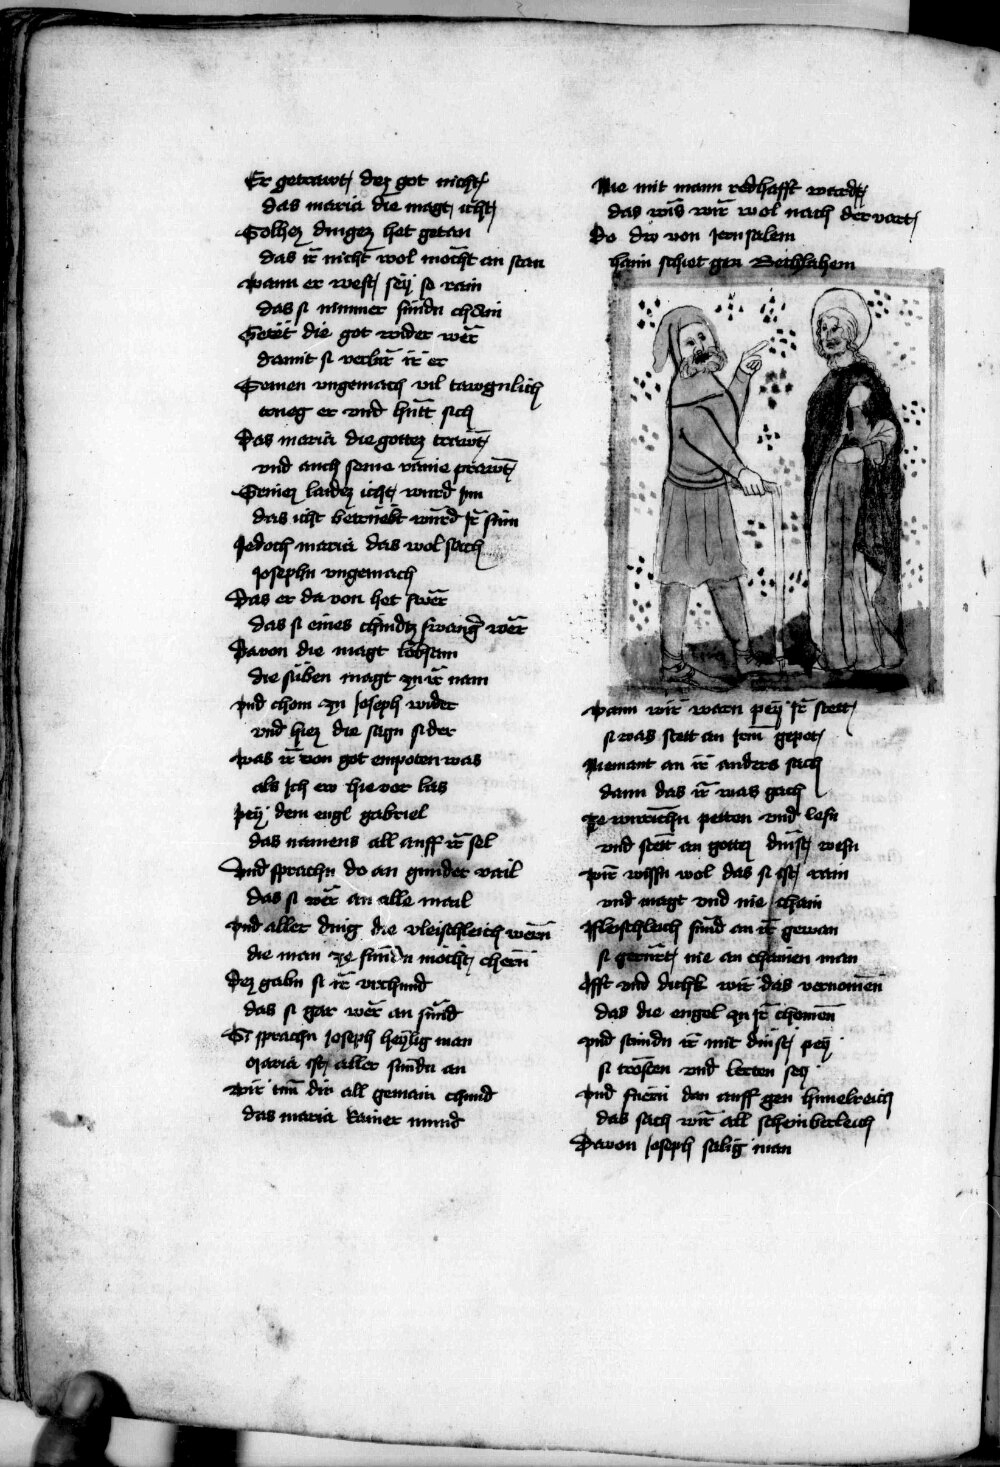 Er getrawt dez got nicht
das maria die magt icht
Solhez dingez het getan
das ir nicht wol mocht an stan
Wann er west sey so rain
das si nimmer sundn chain
Getet die got wider wer
damit si verlur ir er
Seinen ungemach vil tawgnlich
trueg er und hutt sich
Das maria die gottez trawt
und auch seine raine prawt
Seinez laidez icht wurd inn
das icht betruebt wurd ir sinn
Jedoch maria das wol sach
Josephn ungemach
Das er da von het swer
das si eines chindtz swanger wer
Davon die magt lobsam
die siben magt zu ir nam
Und chom zu Joseph wider
und hiez die sagn sider
Was ir von got enpoten was
als ich ew hie vor las
Pey dem engl gabriel
das namens all auff ir sel
Und sprachn do an gunder vail
das si wer an alle mail
Und aller ding die vleischleich wern
die man ze sundn mocht chern
Dez gabn si ir urchund
das si gar wer an sund
Si sprachn Joseph heylig man
Maria ist aller sundn an
Wir tun dir all gemain chund
das maria kainer mund
Nie mit mann redhafft ward
das wis wir wol nach der vart
Do du von Jerusalem
hain schiet gen Bethlahem
Wann wir warn pey ir stett
si was stett an irm gepet
Niemant an ir anders sach
dann das ir was gach
Ze wurichn petten und lesn
und stett an gottez dinst wesn
Wir wissn wol das si ist rain
und magt und nie chain
Fleischleich sund an ir gewan
si gerurt nie an chainen man
Offt und dickh wir das vernomen
das die engel zu ir chomen
Und stundn ir mit dinst pey
si trosten und lerten sey
Und fuern dan auff gen himelreich
das sach wir all scheinberleich
Davon Joseph salig man